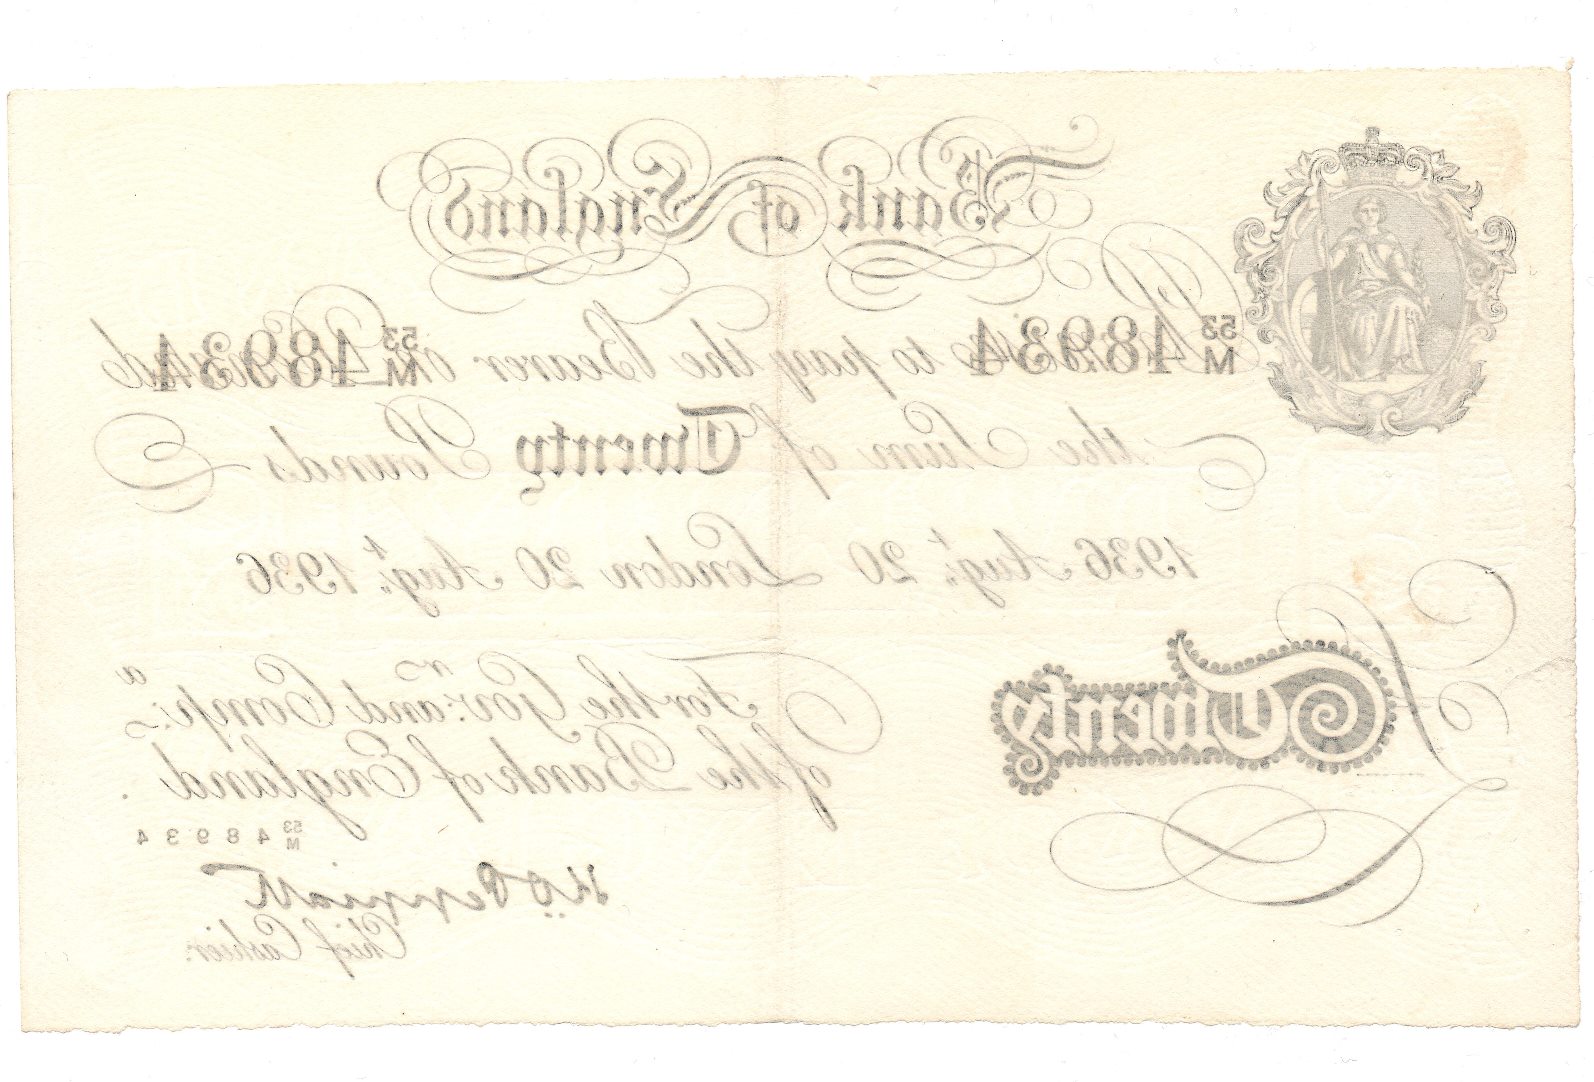 Bank of England
53
M 48934 53
M 48934
Promise to pay the Bearer on Demand
the Sum of Twenty Pounds
1936 Augt. 20 London 20 Augt. 1936
Twenty
For the Govr. and Compa.
of the Bank of England.
53
M 48934
K O Peppiatt
Chief Cashier.